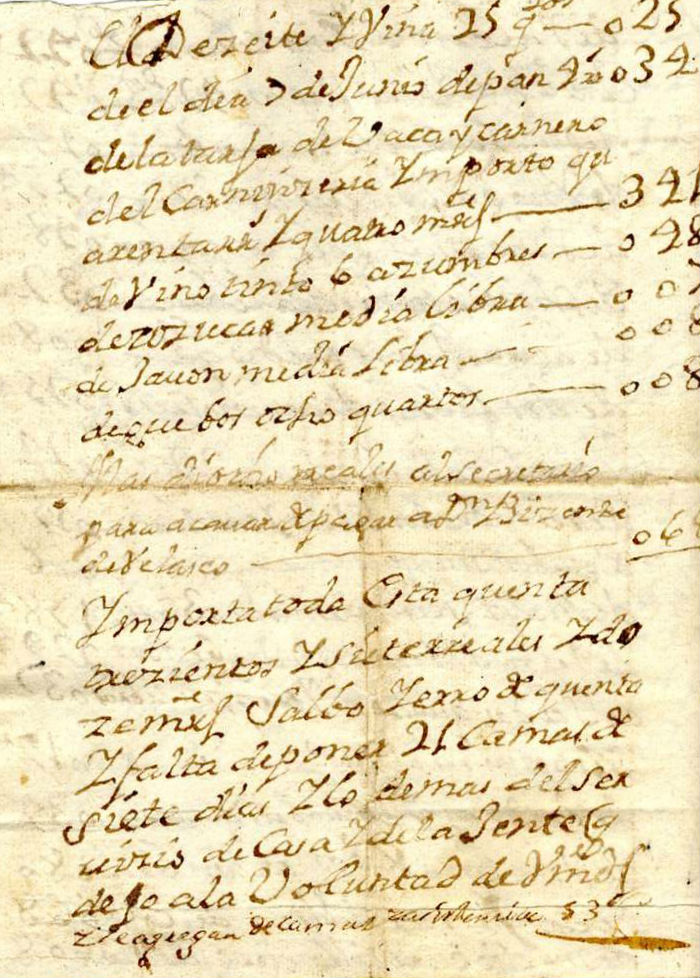 De zeite Y Vina 25 q^tos — 025
de el dia 7 de Junio de pan 4 034
de la tarja de Vaca y carnero
del Carnizeria Ymporto qu
arenta rr^s Y quatro mrs — 341
de Vino tinto 6 azumbres — 048
de azucar media libra — 00
de Jauon media Libra — 008
de guebos ocho quartos — 008
Mas di ocho reales al secretario
para acauar de pagar a Dn Bizente
de Velasco — 06
Ymporta toda Esta quenta
trezientos Y siete rreales Y do
ze mrs Salbo Yerro de quenta
Y falta de poner 21 Camas de
siete dias Y lo demas del ser
uizio de Casa Y de la Jente q
dejo a la Voluntad de Vmd
se agregan de camas 83